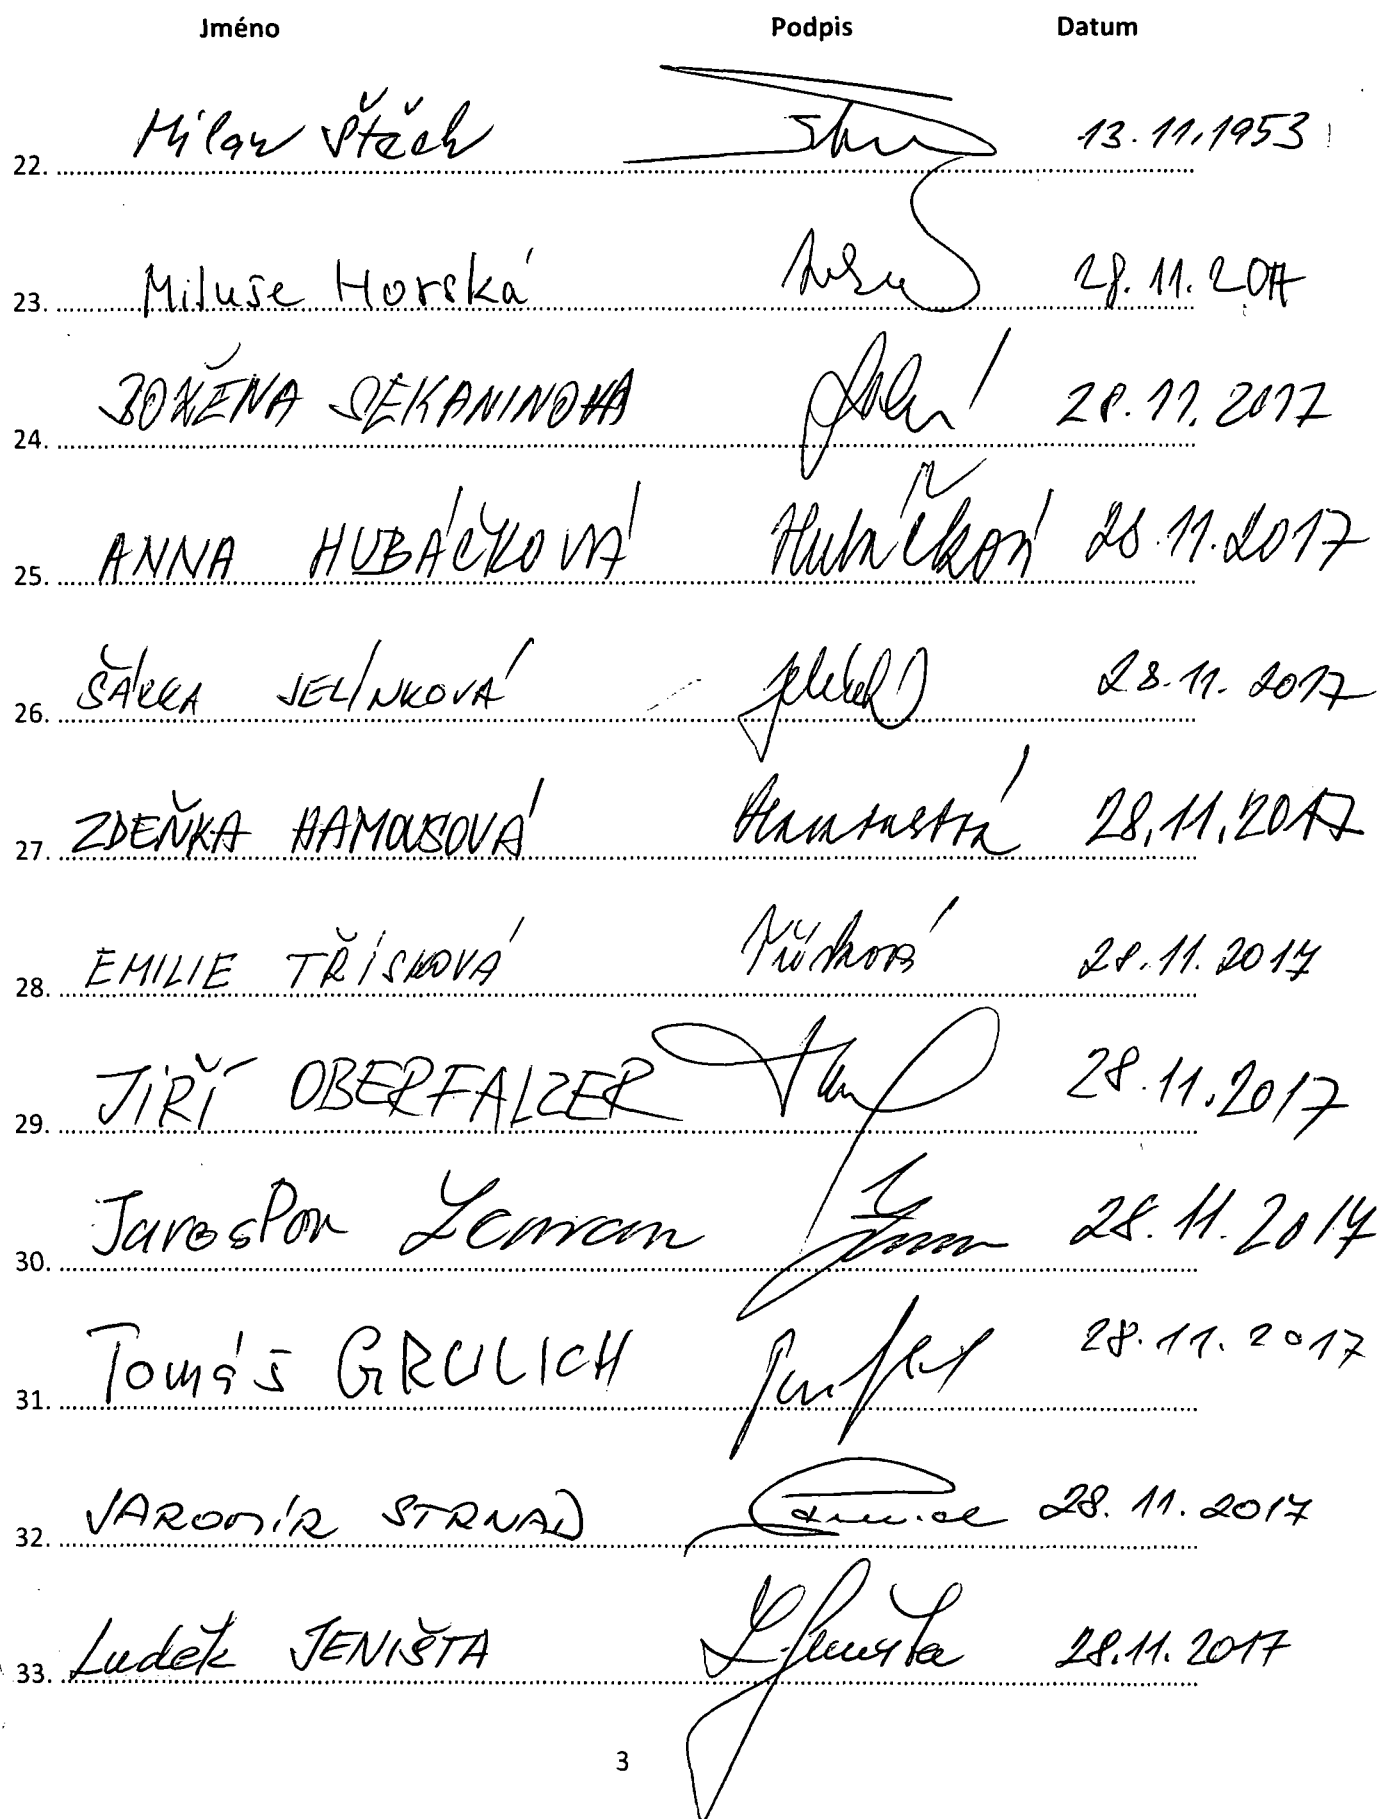 Jméno Podpis Datum
22. Milan Štěch 13.11.1953
23. Miluše Horská 28.11.2017
24. BOŽENA SEKANINOVÁ 28.11.2017
25. ANNA HUBÁČKOVÁ Hubáčková 28.11.2017
26. ŠÁRKA JELÍNKOVÁ 28.11.2017
27. ZDEŇKA HAMOUSOVÁ Hamousová 28.11.2017
28. EMILIE TŘÍSKOVÁ Třísková 28.11.2017
29. JIŘÍ OBERFALZER 28.11.2017
30. Jaroslav Zeman 28.11.2017
31. Tomáš GRULICH 28.11.2017
32. JAROMÍR STRNAD 28.11.2017
33. Luděk JENIŠTA L. Jeništa 28.11.2017
3